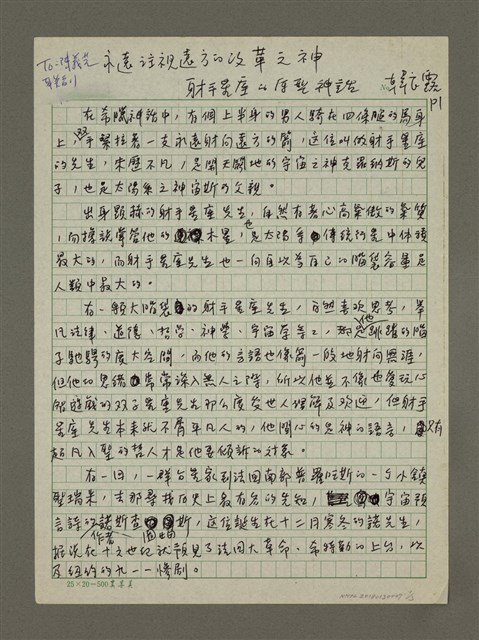 To:陳義芝
聯合副刊
永遠注視遠方的改革之神
射手星座的原型神話 韓良露
P1
在希臘神話中,有個上半身的男人騎在四條腿的馬身
上,雙手緊拉著一支永遠射向遠方的箭,這位叫做射手星座
的先生,來歷不凡,是開天闢地的宇宙之神支羅納斯的兒
子,也是太陽系之神宙斯的父親。
出身顯赫的射手星座先生,自然有著心高氣傲的氣質
,何況掌管他的木星,也是太陽系傳統行星中体積
最大的,而射手星座先生也一向自以為自己的腦袋容量是
人類中最大的。
有一顆大腦袋的射手星座先生,自然喜歡思考,舉
凡法律、道德、哲學、神學、宇宙學等之,都是他跳躍的腦
子馳騁的廣大空間,而他的言語也像箭一般地射向無涯,
但他的思緒常常深入無人之際,所以他並不像也愛玩心
智遊戲的双子星座先生那么廣受世人理解及歡迎,但射手
星座先生本來就不屑平凡人的,他關心的是神的語言,只有
超凡入聖的哲人才是他要傾訴的对象。
有一回,一群占星家到法國南部普羅旺斯的一个小鎮
聖瑞米,去那尋找历史上最有名的先知,宇宙預
言詩的作者諾斯查丹姆斯,這位誕生在十二月寒冬的諾先生,
據說在十六世紀就預見了法國大革命、希特勒的上台,以
及紐約的九一一慘劇。
25×20=500